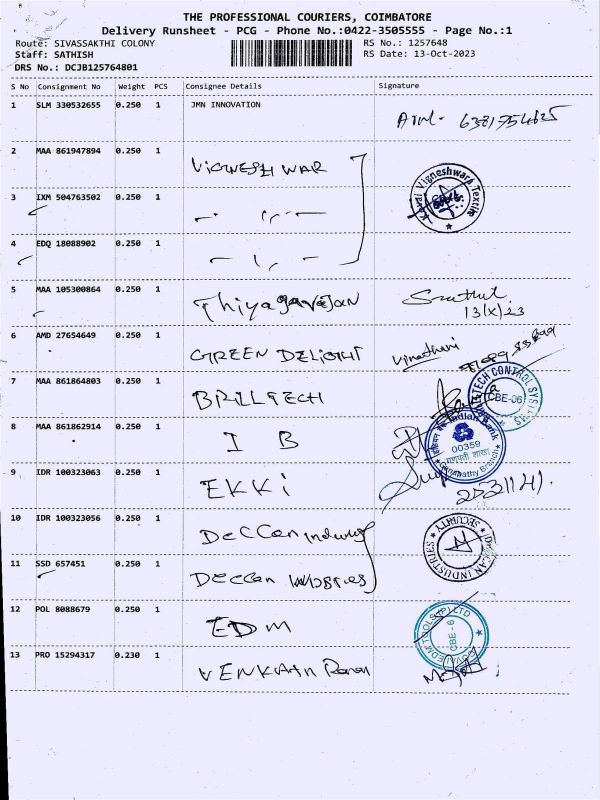 THE PROFESSIONAL COURIERS, COIMBATORE
Delivery Runsheet - PCG - Phone No.:0422-3505555 - Page No.:1
Route: SIVASSAKTHI COLONY
RS No.: 1257648
Staff: SATHISH
RS Date: 13-Oct-2023
DRS No.: DCJB125764801
S No Consignment No Weight PCS Consignee Details Signature
1 SLM 330532655 0.250 1 JMN INNOVATION
2 MAA 861947894 0.250 1 VIGNESH WAR
Kovai Vigneshwara Textile
3 IXM 504763502 0.250 1
4 EDQ 18088902 0.250 1
5 MAA 105300864 0.250 1 Thiyagarajan
13/X/23
6 AMD 27654649 0.250 1 GREEN DELIGHT
7 MAA 861864803 0.250 1 BRILLTECH
TECH CONTROL SYS
CBE-06
8 MAA 861862914 0.250 1 I B
Indian Bank
00359
गणपती शाखा
Ganapathy Branch
9 IDR 100323063 0.250 1 EKKi
10 IDR 100323056 0.250 1 Deccan
SECURITY
DECCAN INDUSTRIES
11 SSD 657451 0.250 1 Deccan
12 POL 8088679 0.250 1 EDM
EDM TOOLS (P) LTD
CBE-6
13 PRO 15294317 0.230 1 VENKATA Raman